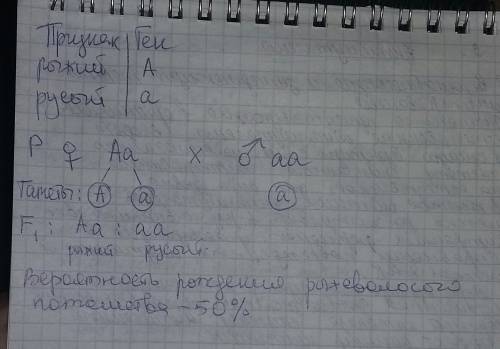 Признак | Ген
рыжий | А
русый | а
Р ♀ Аа х ♂ аа
Гаметы: А а а
F₁: Аа : аа
рыжий русый.
Вероятность рождения рыжеволосого
потомства - 50%